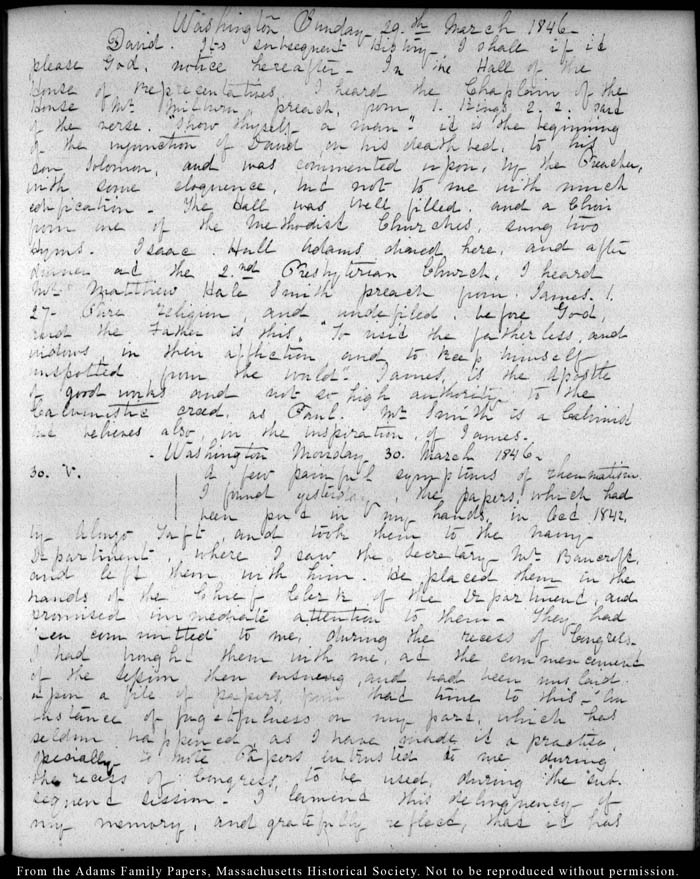 Washington Sunday 29.th March 1846 -
David. Its subsequent History I shall if it
please God, notice hereafter - In the Hall of the
House of Representatives, I heard the Chaplain of the
House Mr Milburn, preach, from 1. Kings 2. 2. part
of the verse. "Show thyself a man" it is the beginning
of the injunction of David on his death bed, to his
son Solomon, and was commented upon, by the Preacher,
with some eloquence, but not to me with much
edification - The Hall was well filled, and a Choir
from one of the Methodist Churches, sung two
Hymns. Isaac Hull Adams dined here, and after
dinner at the 2.nd Presbyterian Church, I heard
Mr Matthew Hale Smith preach from James. 1.
27 - Pure religion, and undefiled, before God,
and the Father is this, "To visit the fatherless, and
widows in their affliction and to keep himself
unspotted from the world". James, is the Apostle
of good works and not so high authority to the
Calvinistic creed, as Paul. Mr Smith is a Calvinist
he believes also, in the inspiration, of James.
- Washington Monday 30. March 1846 -
30. V. A few painful symptoms of rheumatism.
I found yesterday, the papers, which had
been put in my hands, in Oct 1842,
by Alonzo Taft and took them to the Navy
Department, where I saw the Secretary Mr Bancroft,
and left them with him. He placed them in the
hands of the Chief Clerk of the Department, and
promised immediate attention to them - They had
been committed to me, during the recess of Congress.
I had brought them with me, at the commencement
of the session then ensuing, and had been mislaid
upon a file of papers, from that time to this - An
instance of forgetfulness on my part, which has
seldom happened as I have made it a practice,
specially to note Papers intrusted to me during
the recess of Congress, to be used, during the sub-
sequent session - I lament this delinquency of
my memory, and gratefully reflect, that it has
From the Adams Family Papers, Massachusetts Historical Society. Not to be reproduced without permission.